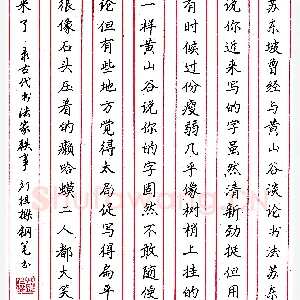 苏东坡曾经与黄山谷谈论书法苏东
说你近来写的字虽然清新劲挺但用
有时候过份瘦弱几乎像树梢上挂的
一样黄山谷说你的字固然不敢随便
论但有些地方觉得太局促写得扁平
很像石头压着的癞蛤蟆二人都大笑
来了 录古代书法家轶事 刘祖操钢笔书